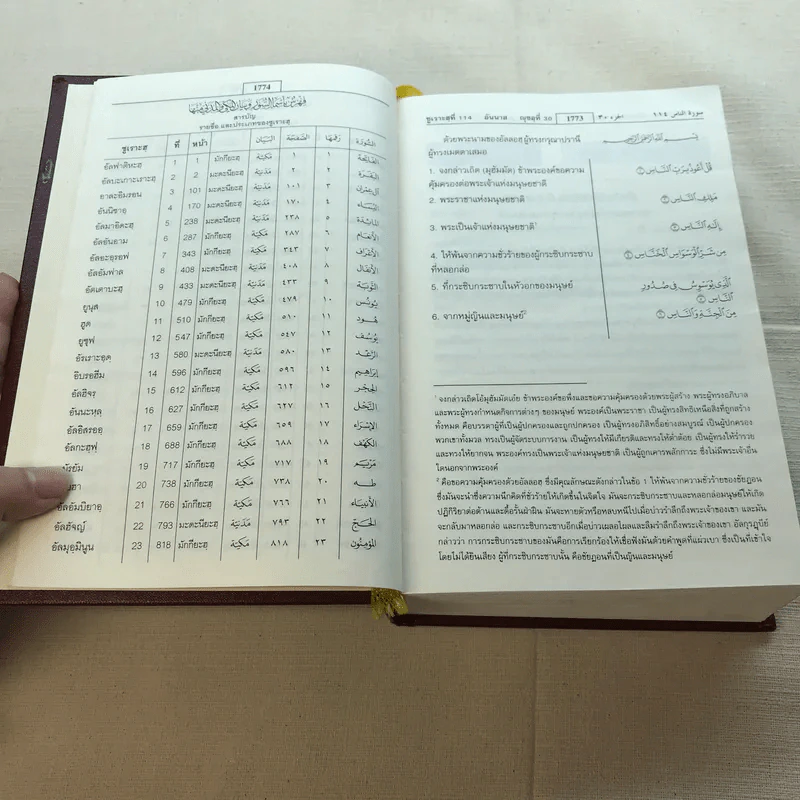 1774
فهرس بأسماء السور وبيان المكي والمدني منها
สารบัญ
รายชื่อ และประเภทของซูเราะฮฺ
ซูเราะฮฺ ที่ หน้า البيان الصفحة رقمها السورة
อัลฟาติหะฮฺ 1 1 มักกียะฮฺ مكية ١ ١ الفاتحة
อัลบะเกาะเราะฮฺ 2 2 มะดะนียะฮฺ مدنية ٢ ٢ البقرة
อาละอิมรอน 3 101 มะดะนียะฮฺ مدنية ١٠١ ٣ آل عمران
อันนิซาอฺ 4 170 มะดะนียะฮฺ مدنية ١٧٠ ٤ النساء
อัลมาอิดะฮฺ 5 238 มะดะนียะฮฺ مدنية ٢٣٨ ٥ المائدة
อัลอันอาม 6 287 มักกียะฮฺ مكية ٢٨٧ ٦ الأنعام
อัลอะอฺรอฟ 7 343 มักกียะฮฺ مكية ٣٤٣ ٧ الأعراف
อัลอันฟาล 8 408 มะดะนียะฮฺ مدنية ٤٠٨ ٨ الأنفال
อัตเตาบะฮฺ 9 433 มะดะนียะฮฺ مدنية ٤٣٣ ٩ التوبة
ยูนุส 10 479 มักกียะฮฺ مكية ٤٧٩ ١٠ يونس
ฮูด 11 510 มักกียะฮฺ مكية ٥١٠ ١١ هود
ยูซุฟ 12 547 มักกียะฮฺ مكية ٥٤٧ ١٢ يوسف
อัรเราะอฺดุ 13 580 มะดะนียะฮฺ مدنية ٥٨٠ ١٣ الرعد
อิบรอฮีม 14 596 มักกียะฮฺ مكية ٥٩٦ ١٤ إبراهيم
อัลฮิจรฺ 15 612 มักกียะฮฺ مكية ٦١٢ ١٥ الحجر
อันนะหฺลฺ 16 627 มักกียะฮฺ مكية ٦٢٧ ١٦ النحل
อัลอิสรออฺ 17 659 มักกียะฮฺ مكية ٦٥٩ ١٧ الإسراء
อัลกะฮฺฟฺ 18 688 มักกียะฮฺ مكية ٦٨٨ ١٨ الكهف
มัรยัม 19 717 มักกียะฮฺ مكية ٧١٧ ١٩ مريم
20 738 มักกียะฮฺ مكية ٧٣٨ ٢٠ طه
อัลอัมบิยาอฺ 21 766 มักกียะฮฺ مكية ٧٦٦ ٢١ الأنبياء
อัลฮัจญ์ 22 793 มะดะนียะฮฺ مدنية ٧٩٣ ٢٢ الحج
อัลมุอฺมินูน 23 818 มักกียะฮฺ مكية ٨١٨ ٢٣ المؤمنون
ซูเราะฮฺที่ 114 อันนาส ญุซอฺที่ 30 1773 الجزء ٣٠ سورة الناس ١١٤
ด้วยพระนามของอัลลอฮฺ ผู้ทรงกรุณาปรานี
ผู้ทรงเมตตาเสมอ
بسم الله الرحمن الرحيم
1. จงกล่าวเถิด (มุฮัมมัด) ข้าพระองค์ขอความ
คุ้มครองต่อพระเจ้าแห่งมนุษยชาติ
قُلْ أَعُوذُ بِرَبِّ النَّاسِ ①
2. พระราชาแห่งมนุษยชาติ
مَلِكِ النَّاسِ ②
3. พระเป็นเจ้าแห่งมนุษยชาติ¹
إِلَٰهِ النَّاسِ ③
4. ให้พ้นจากความชั่วร้ายของผู้กระซิบกระซาบ
ที่หลอกล่อ
مِن شَرِّ الْوَسْوَاسِ الْخَنَّاسِ ④
5. ที่กระซิบกระซาบในหัวอกของมนุษย์
الَّذِي يُوَسْوِسُ فِي صُدُورِ
النَّاسِ ⑤
6. จากหมู่ญินและมนุษย์²
مِنَ الْجِنَّةِ وَالنَّاسِ ⑥
¹ จงกล่าวเถิดโอ้มุฮัมมัดเอ๋ย ข้าพระองค์ขอพึ่งและขอความคุ้มครองด้วยพระผู้สร้าง พระผู้ทรงอภิบาล
และพระผู้ทรงกำหนดกิจการต่างๆ ของมนุษย์ พระองค์เป็นพระราชา เป็นผู้ทรงสิทธิเหนือสิ่งที่ถูกสร้าง
ทั้งหมด คือบรรดาผู้ที่เป็นผู้ปกครองและถูกปกครอง เป็นผู้ทรงอภิสิทธิ์อย่างสมบูรณ์ เป็นผู้ปกครอง
พวกเขาทั้งมวล ทรงเป็นผู้จัดระบบการงาน เป็นผู้ทรงให้มีเกียรติและทรงให้ต่ำต้อย เป็นผู้ทรงให้ร่ำรวย
และทรงให้ยากจน พระองค์ทรงเป็นพระเจ้าแห่งมนุษยชาติ เป็นผู้ถูกเคารพสักการะ ซึ่งไม่มีพระเจ้าอื่น
ใดนอกจากพระองค์
² คือขอความคุ้มครองด้วยอัลลอฮฺ ซึ่งมีคุณลักษณะดังกล่าวในข้อ 1 ให้พ้นจากความชั่วร้ายของชัยฏอน
ซึ่งมันจะนำซึ่งความนึกคิดที่ชั่วร้ายให้เกิดขึ้นในจิตใจ มันจะกระซิบกระซาบและหลอกล่อมนุษย์ให้เกิด
ปฏิกิริยาต่อต้านและดื้อรั้นฝ่าฝืน มันจะหายตัวหรือหลบหนีไปเมื่อบ่าวรำลึกถึงพระเจ้าของเขา และมัน
จะกลับมาหลอกล่อ และกระซิบกระซาบอีกเมื่อบ่าวเผลอไผลและลืมรำลึกถึงพระเจ้าของเขา อัลกุรฏูบีย์
กล่าวว่า การกระซิบกระซาบของมันคือการเรียกร้องให้เชื่อฟังมันด้วยคำพูดที่แผ่วเบา ซึ่งเป็นที่เข้าใจ
โดยไม่ได้ยินเสียง ผู้ที่กระซิบกระซาบนั้น คือชัยฏอนที่เป็นญินและมนุษย์